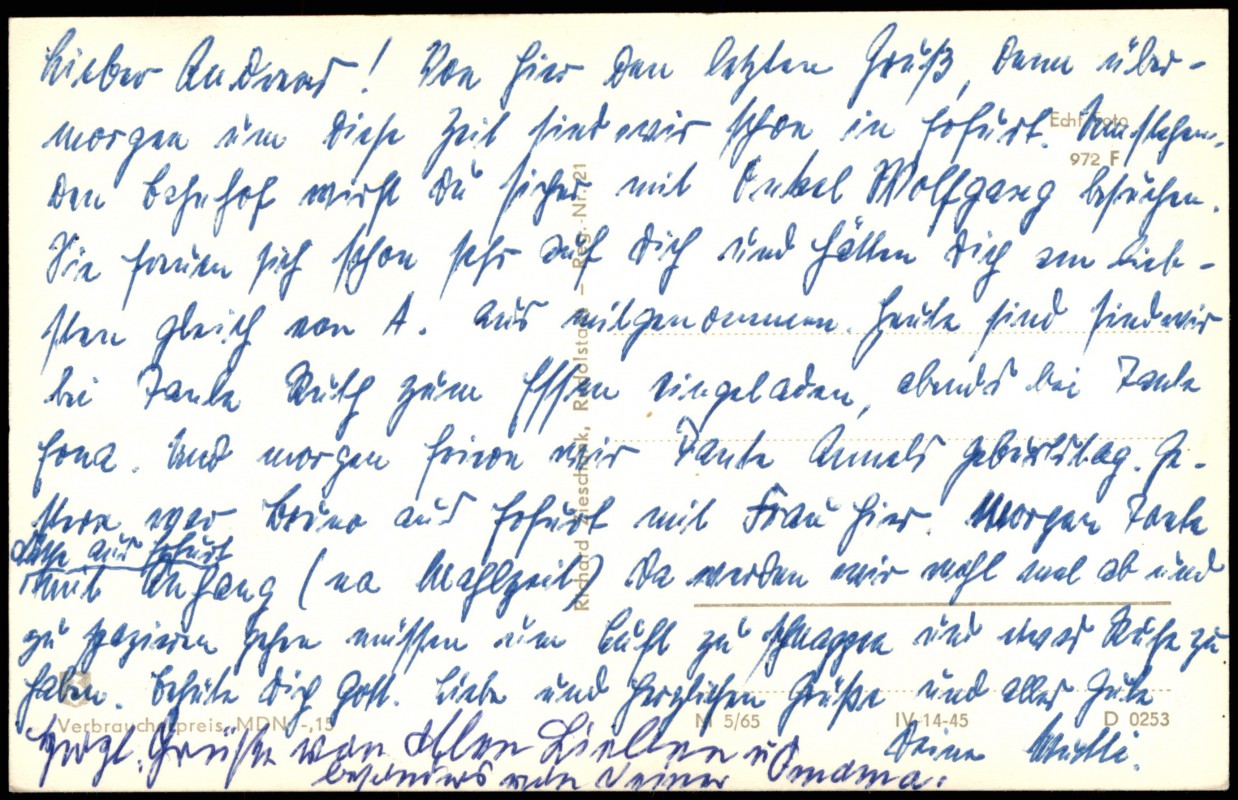 Lieber Andreas! Von hier den letzten Gruß, denn über-
morgen um diese Zeit sind wir schon in Erfurt.
den Bahnhof wirst Du sicher mit Onkel Wolfgang besuchen.
Sie freuen sich schon sehr auf Dich und hätten Dich am lieb-
sten gleich von A. aus mitgenommen. Heute sind sind wir
bei Tante Ruth zum Essen eingeladen, abends bei Tante
Und morgen feiern wir Tante Annels Geburtstag. Ge-
stern war Bruno aus Erfurt mit Frau hier. Morgen Tante
aus Erfurt
mit Anhang (na Mahlzeit) da werden wir wohl mal ab und
zu spazieren gehen müssen um Luft zu schnappen und etwas Ruhe zu
haben. Behüte Dich Gott. Liebe und herzlichen Grüße und alles Gute
Deine Mutti.
Herzl. Grüße von allen Lieben u
besonders von Deiner Omama.
Echt Foto
972 F
Richard Zieschank, Rudolstadt – Reg.-Nr. 21
Verbraucherpreis MDN -,15
N 5/65
IV-14-45
D 0253